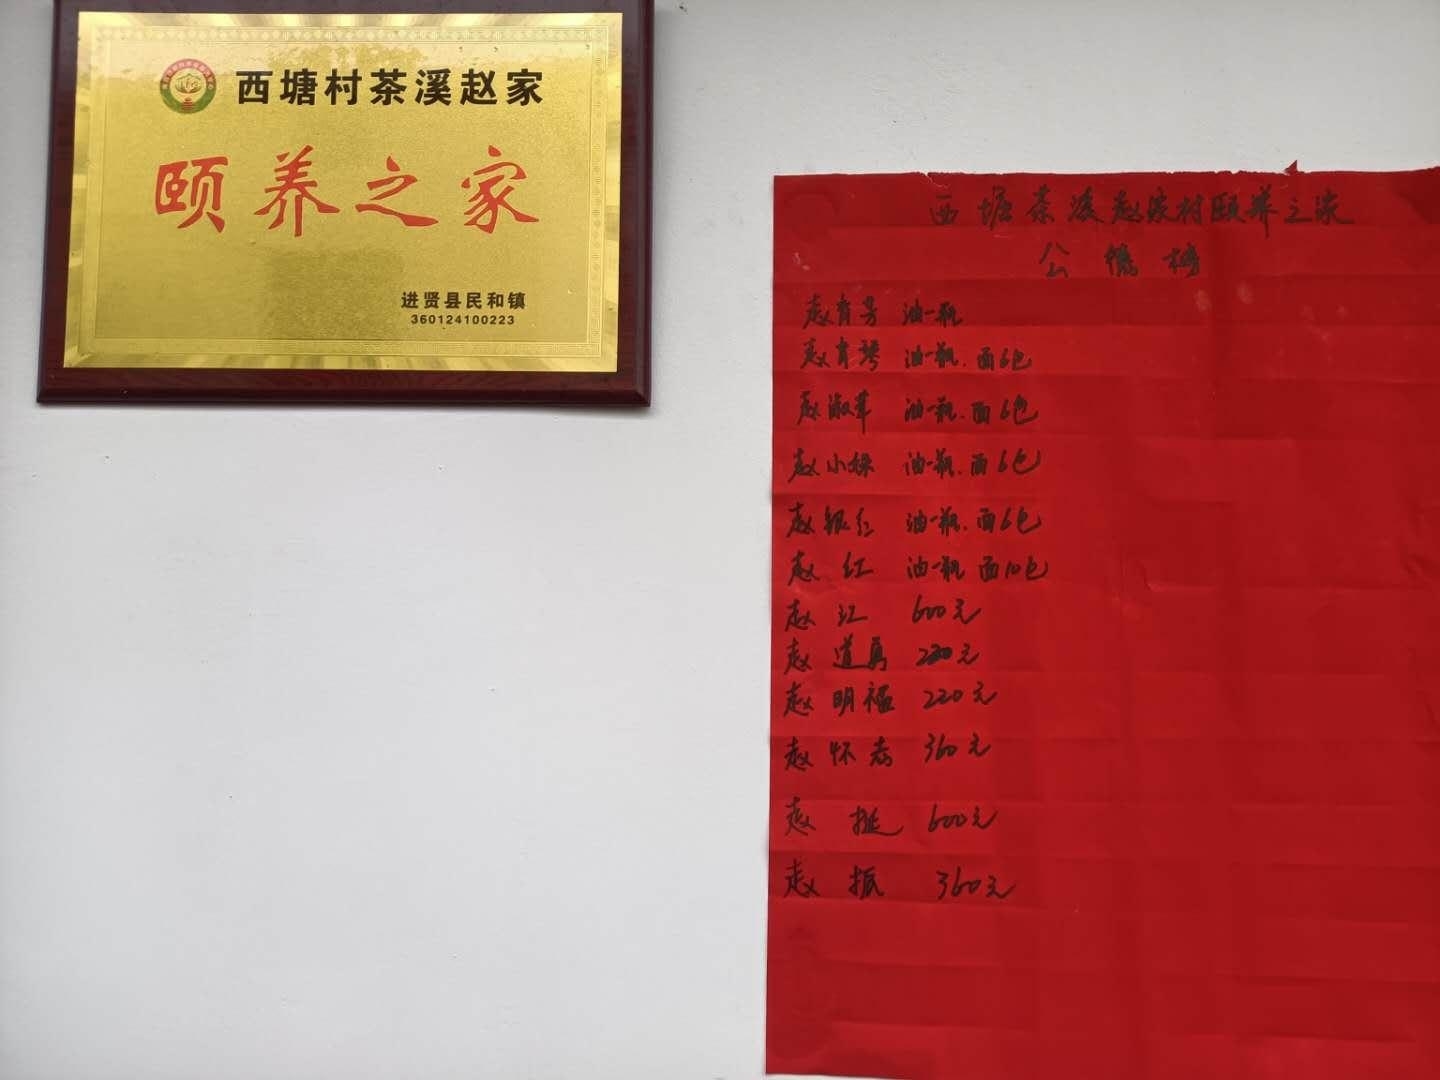 西塘村茶溪赵家
颐养之家
进贤县民和镇
360124100223
西塘茶溪赵家村颐养之家
公德榜
赵肖芳 油一瓶
赵肖琴 油一瓶.面6包
赵淑萍 油一瓶.面6包
赵小妹 油一瓶.面6包
赵银红 油一瓶.面6包
赵红 油一瓶 面10包
赵江 600元
赵道勇 220元
赵明福 220元
赵怀春 360元
赵挺 600元
赵振 360元